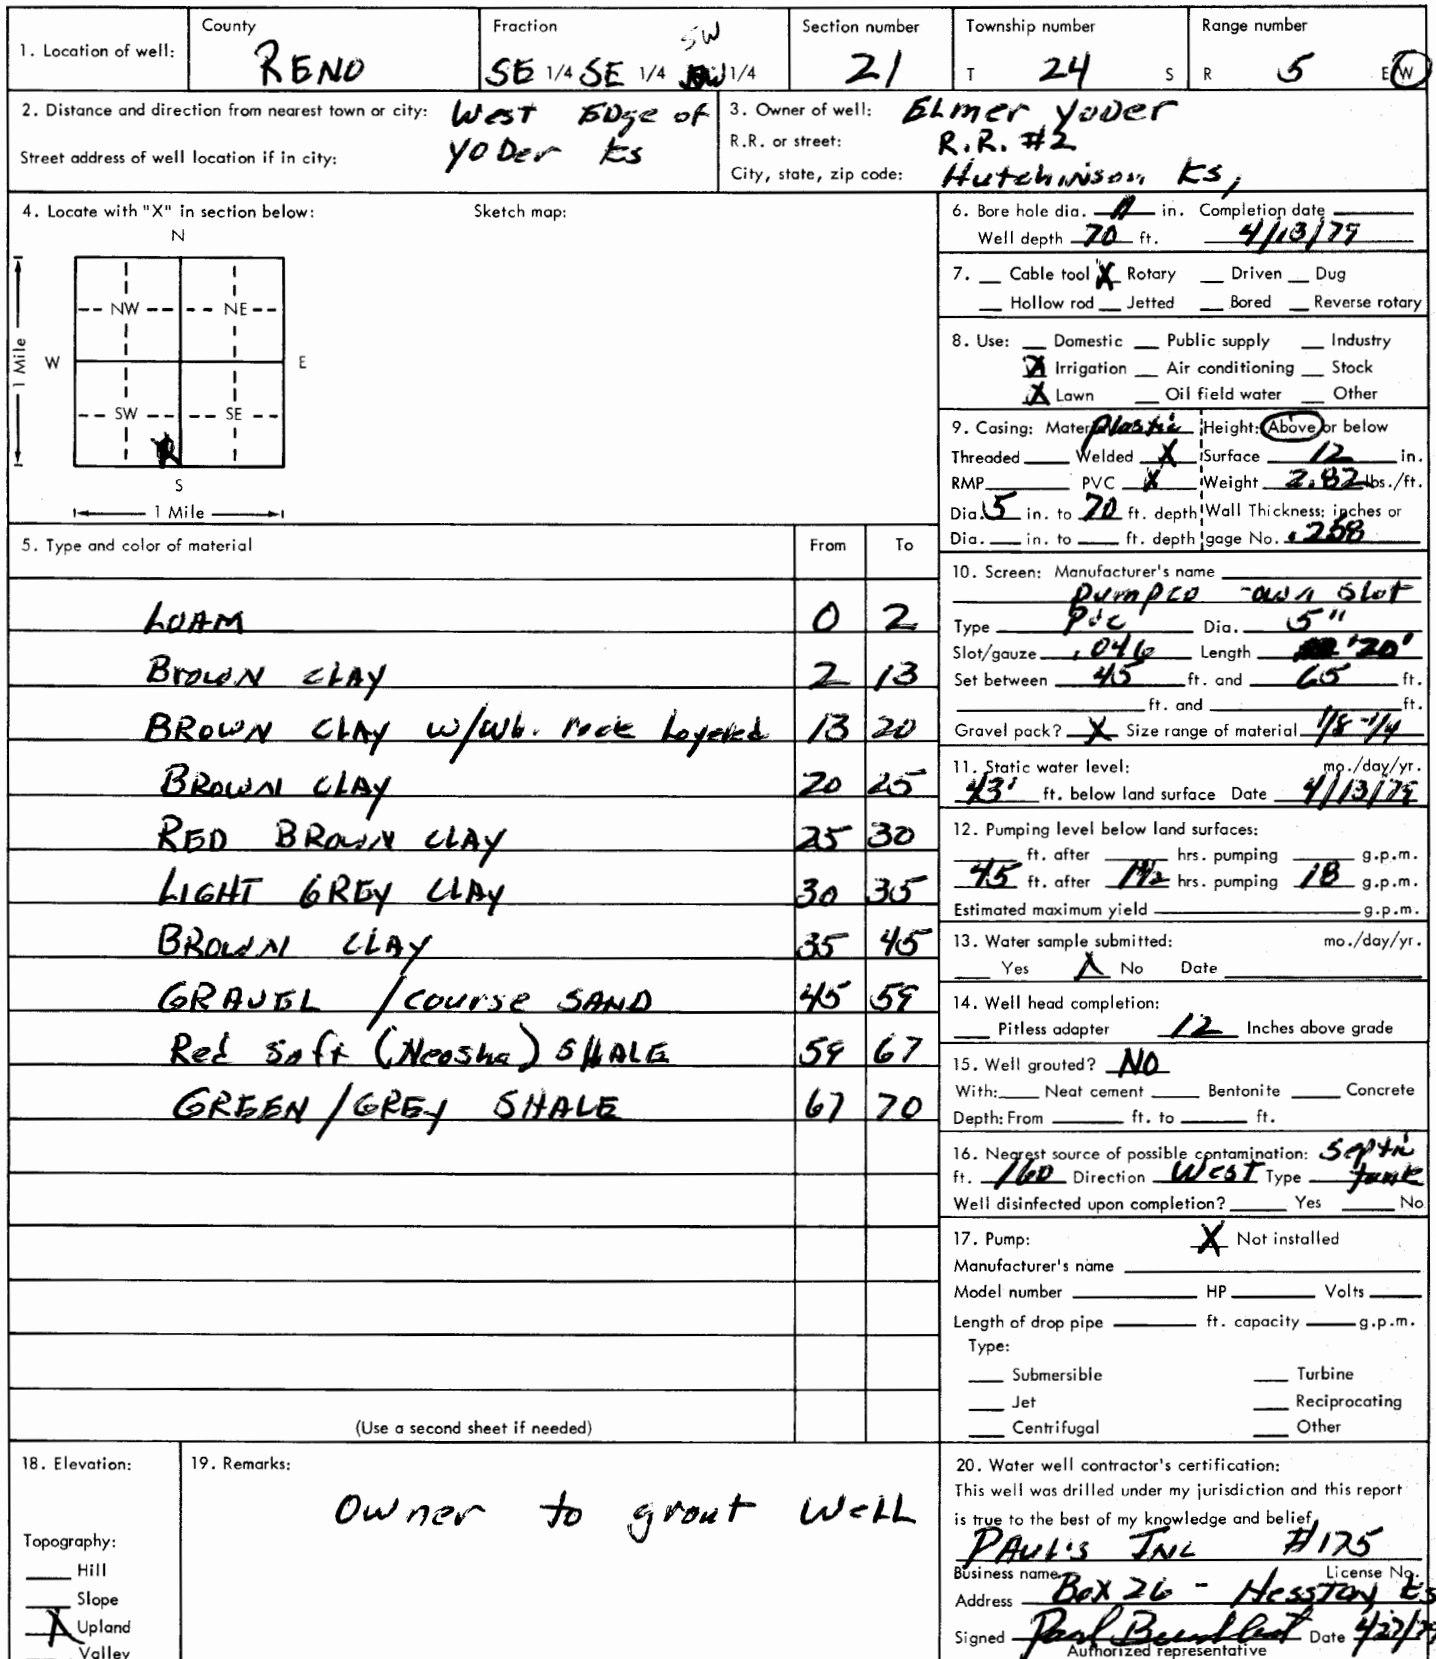 1. Location of well: County RENO Fraction SE 1/4 SE 1/4 SW 1/4 Section number 21 Township number T 24 S Range number R 5 E W
2. Distance and direction from nearest town or city: West Edge of
Yoder Ks
Street address of well location if in city:
3. Owner of well: Elmer Yoder
R.R. or street: R.R. #2
City, state, zip code: Hutchinson, Ks,
4. Locate with "X" in section below: Sketch map:
N
NW NE
W E
1 Mile
SW SE
S
1 Mile
5. Type and color of material From To
LOAM 0 2
Brown CLAY 2 13
BROWN CLAY w/Wh. rock Layered 13 20
BROWN CLAY 20 25
RED BROWN CLAY 25 30
LIGHT GREY CLAY 30 35
BROWN CLAY 35 45
GRAVEL /course SAND 45 59
Red Soft (Neosha) SHALE 59 67
GREEN/GREY SHALE 67 70
(Use a second sheet if needed)
6. Bore hole dia. in. Completion date
Well depth 70 ft. 4/13/79
7. Cable tool X Rotary Driven Dug
Hollow rod Jetted Bored Reverse rotary
8. Use: Domestic Public supply Industry
X Irrigation Air conditioning Stock
X Lawn Oil field water Other
9. Casing: Mater plastic Height: Above or below
Threaded Welded X Surface 12 in.
RMP PVC X Weight 2.82 lbs./ft.
Dia. 5 in. to 70 ft. depth Wall Thickness: inches or
Dia. in. to ft. depth gage No. .258
10. Screen: Manufacturer's name
Pumpco -own slot
Type Pvc Dia. 5"
Slot/gauze .046 Length 20'
Set between 45 ft. and 65 ft.
ft. and ft.
Gravel pack? X Size range of material 1/8-1/4
11. Static water level: mo./day/yr.
43' ft. below land surface Date 4/13/79
12. Pumping level below land surfaces:
ft. after hrs. pumping g.p.m.
45 ft. after 1 1/2 hrs. pumping 18 g.p.m.
Estimated maximum yield g.p.m.
13. Water sample submitted: mo./day/yr.
Yes X No Date
14. Well head completion:
Pitless adapter 12 Inches above grade
15. Well grouted? NO
With: Neat cement Bentonite Concrete
Depth: From ft. to ft.
16. Nearest source of possible contamination: Septic
ft. 160 Direction West Type tank
Well disinfected upon completion? Yes No
17. Pump: X Not installed
Manufacturer's name
Model number HP Volts
Length of drop pipe ft. capacity g.p.m.
Type:
Submersible Turbine
Jet Reciprocating
Centrifugal Other
18. Elevation:
Topography:
Hill
Slope
X Upland
Valley
19. Remarks:
Owner to grout Well
20. Water well contractor's certification:
This well was drilled under my jurisdiction and this report
is true to the best of my knowledge and belief.
PAUL'S INC #175
Business name License No.
Address Box 26 - Hesston, Ks
Signed Date 4/27/79
Authorized representative